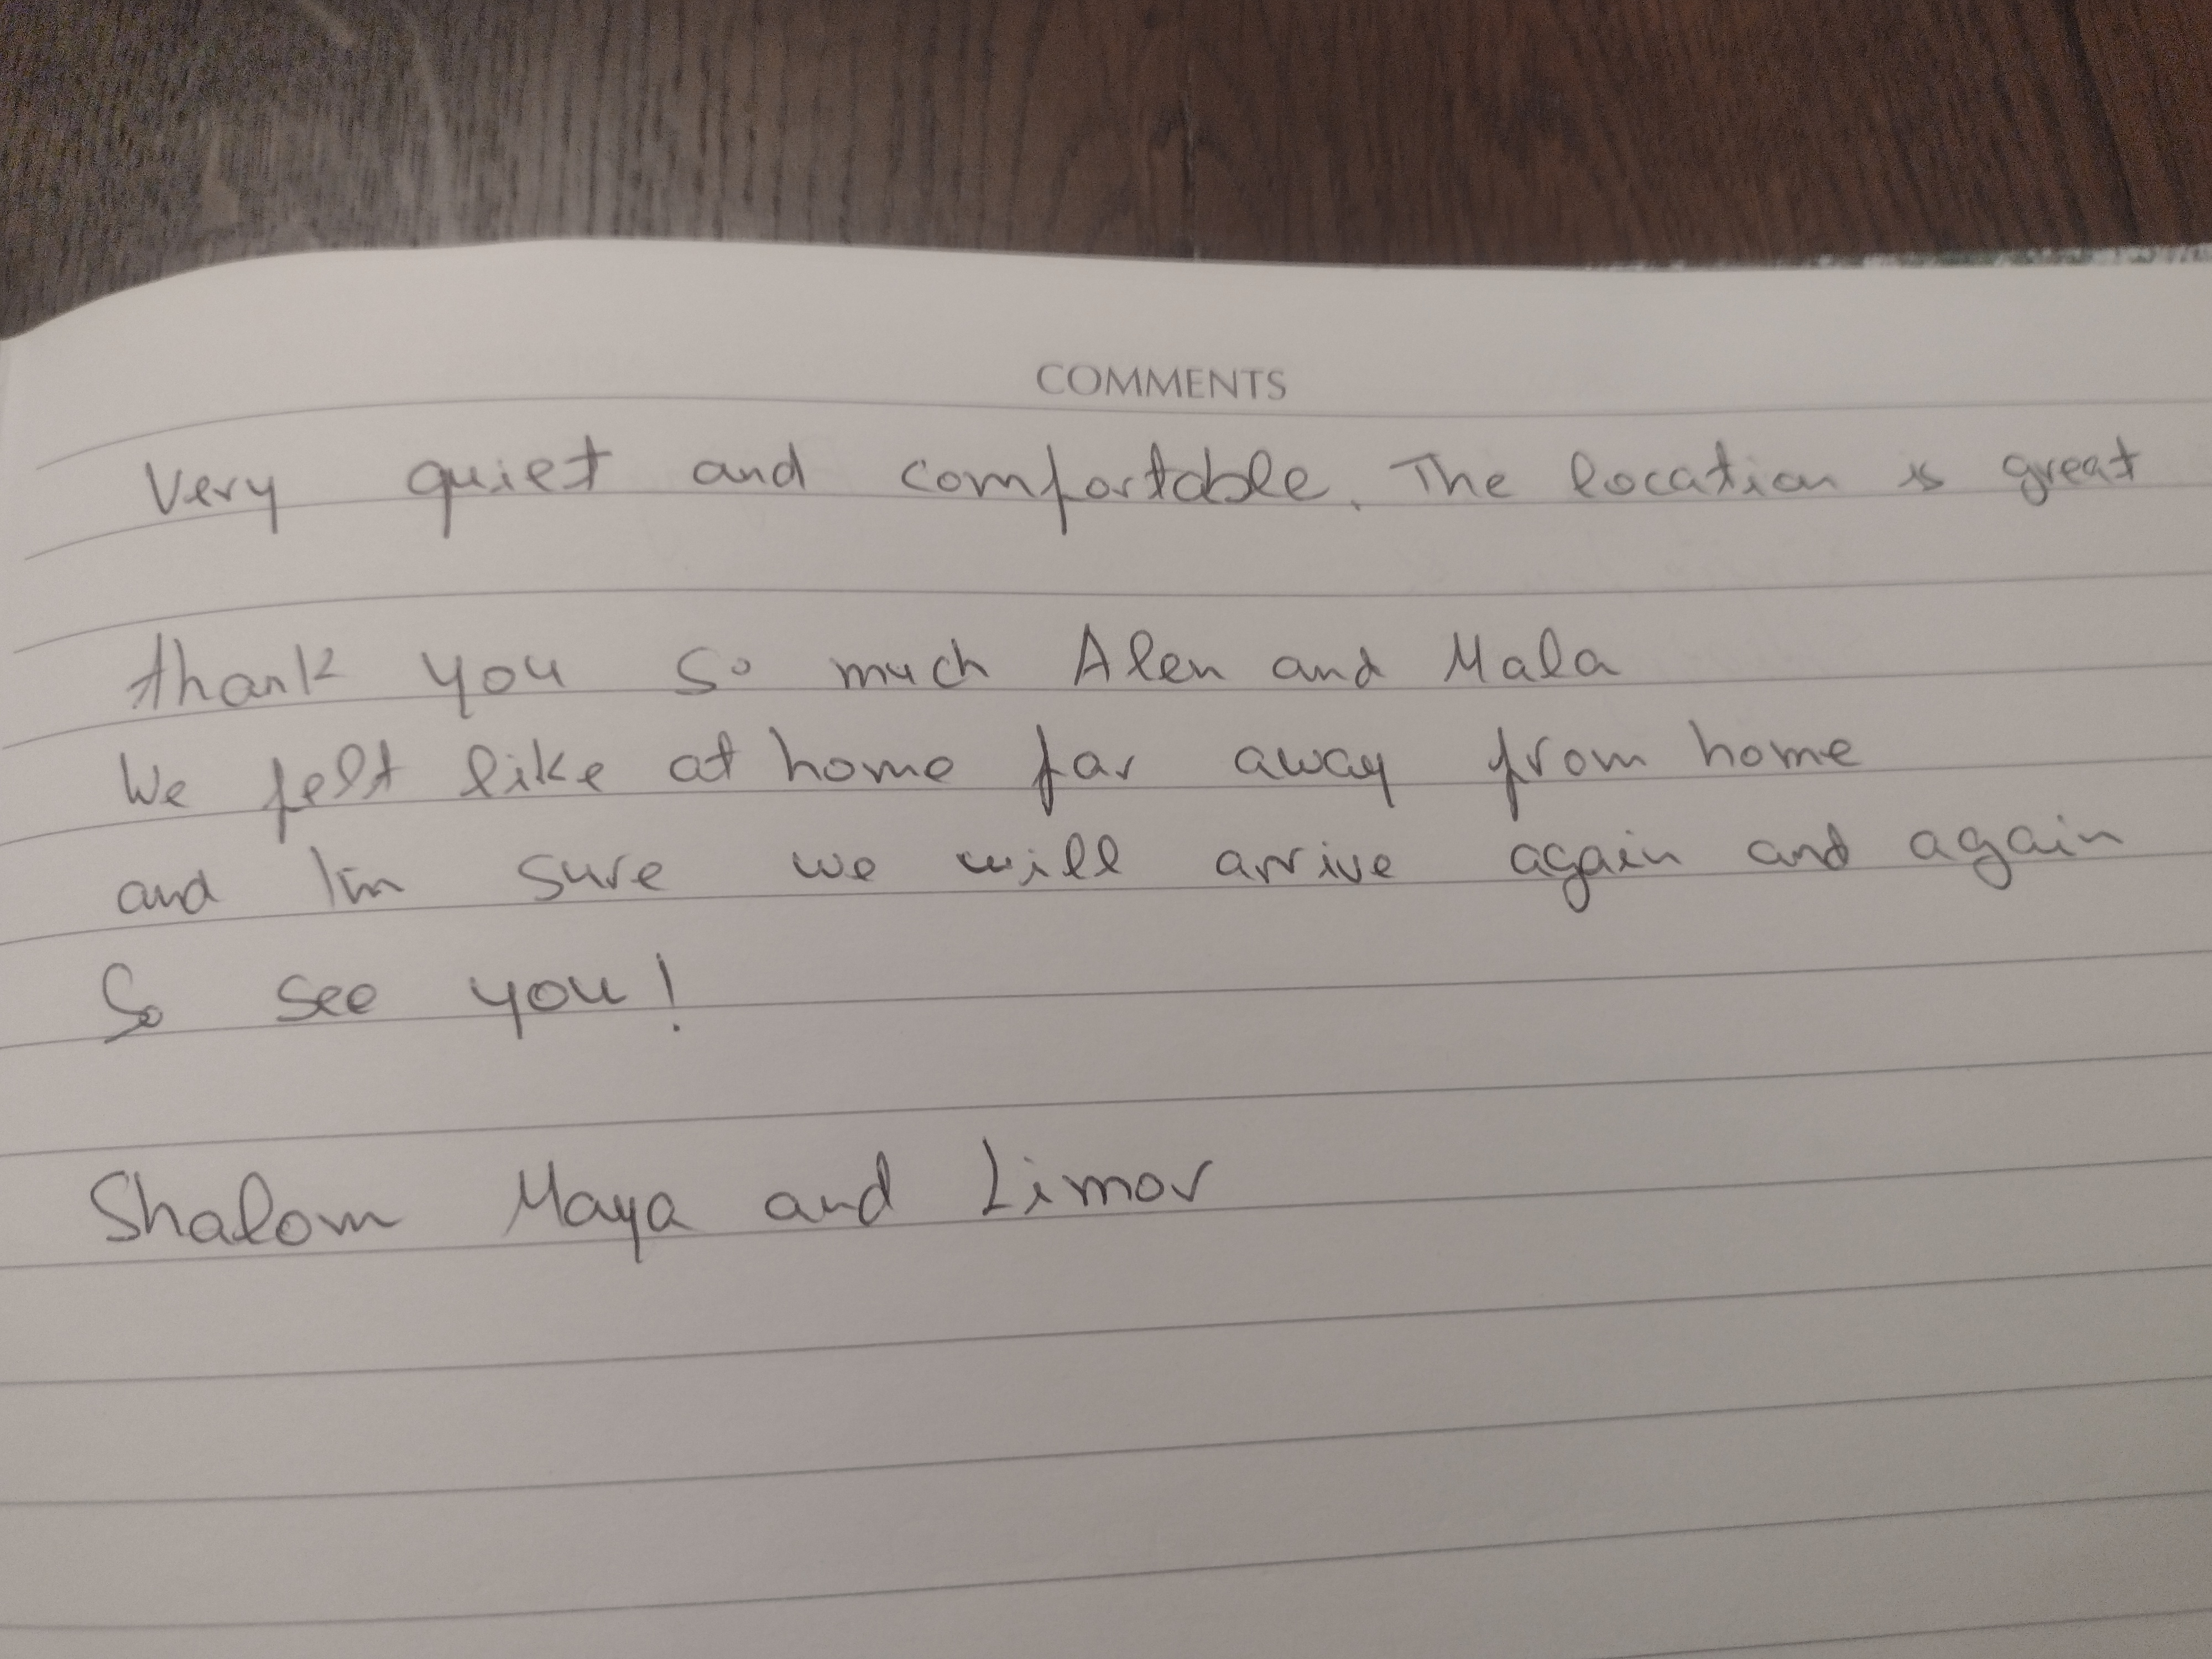 COMMENTS
Very quiet and comfortable. The location is great
thank you so much Alen and Mala
We felt like at home far away from home
and I'm sure we will arrive again and again
So see you!
Shalom Maya and Limor